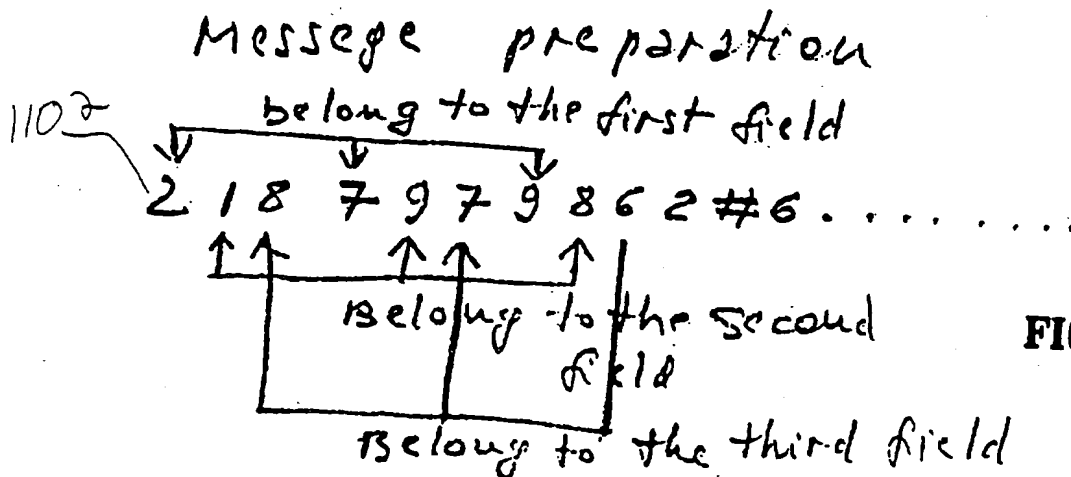 Messege preparation
1102
belong to the first field
2 1 8 7 9 7 9 8 6 2 # 6 . . . . . . . . .
Belong to the second
field
FIG
Belong to the third field